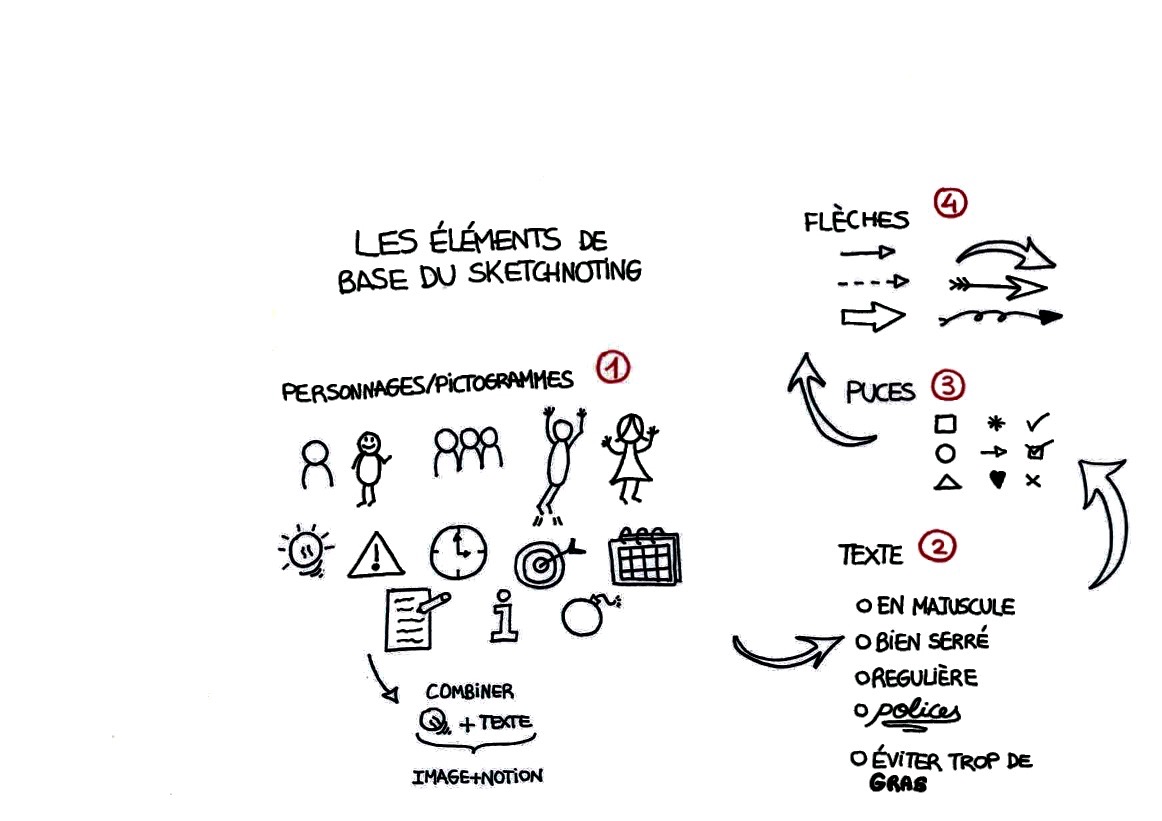 LES ÉLÉMENTS DE
BASE DU SKETCHNOTING
PERSONNAGES/PICTOGRAMMES 1
COMBINER
+ TEXTE
IMAGE+NOTION
TEXTE 2
EN MAJUSCULE
BIEN SERRÉ
REGULIÈRE
polices
ÉVITER TROP DE
GRAS
PUCES 3
FLÈCHES 4